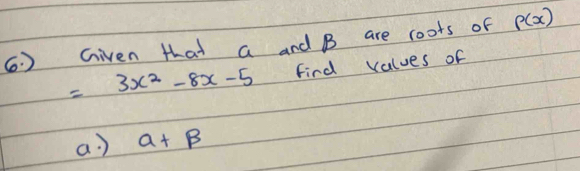 6.) Given that a and β are roots of P(x)
= 3x² - 8x - 5 find values of
a.) a + β